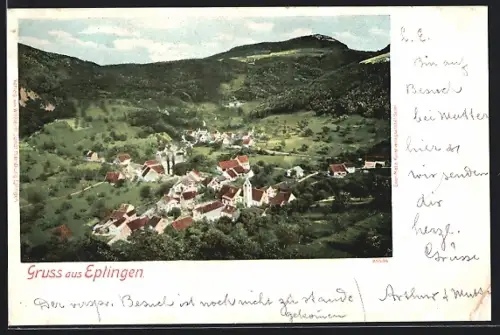 Gruss aus Eptingen.
L. E.
Bin auf
Besuch
bei Mutter
hier &
wir senden
dir
herzl.
Grüsse
Arthur & Mutter
Der verspr. Besuch ist noch nicht zu stande
gekommen